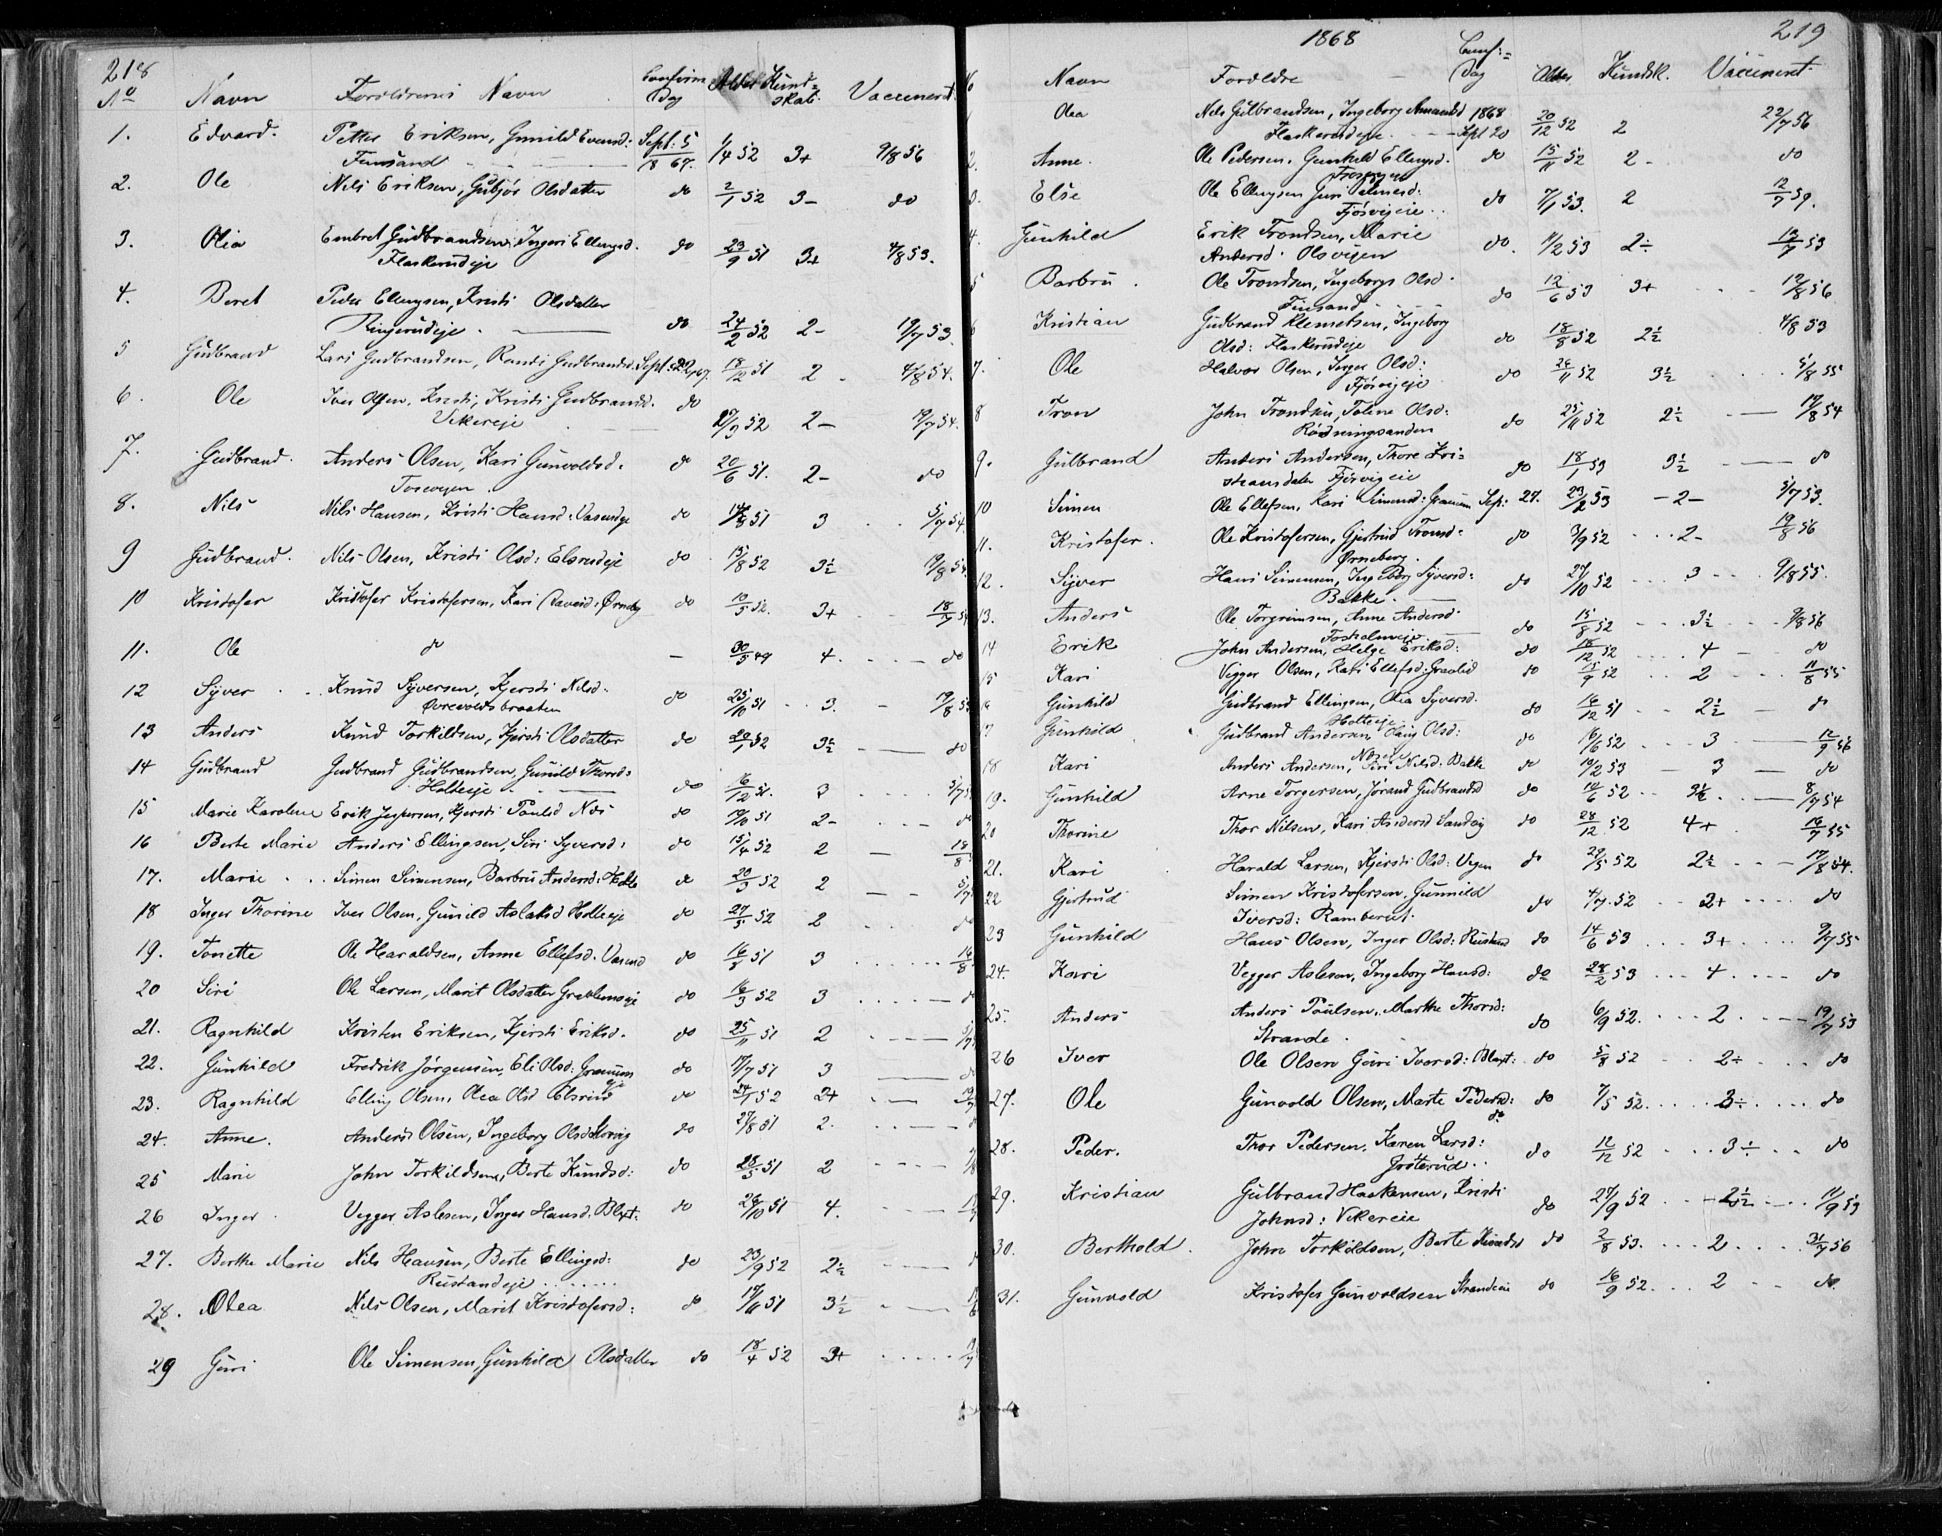 218
No Navn Forældrenes Navn Confirm: Dag Alder Kund=skab. Vaccineret.
1. Edvard. Petter Eriksen, Gunild Evensd: Sept: 5 1/4 52 3+ 9/8 56
Finsand 18 67.
2. Ole Nils Eriksen, Gubjør Olsdatter do 2/1 52 3- do
3. Olia Embret Gudbrandsen, Ingeri Ellingsd. do 23/9 51 3+ 4/8 53.
Flaskerudeje
4. Beret Peder Ellingsen, Kristi Olsdatter
Ringerudeje. do 24/2 52 2- 19/7 53.
5 Gudbrand Lars Gudbrandsen, Randi Gudbrandsd. Sept: 67. 18/12 51 2 4/8 54.
6. Ole Iver Olsen, Kristi Gudbrandsd. do
Vekereje 27/3 52 2- 19/7 54.
7. Gudbrand. Anders Olsen, Kari Gunvoldsd. do 20/6 51. 2- do
8. Nils Nils Hansen, Kristi Hansd: Vasendeje do 14/8 51 3 5/7 54.
9 Gudbrand. Nils Olsen, Kristi Olsd: Elsrudeje do 15/8 52 3½ 19/8 54
10 Kristofer Kristofer Kristofersen, Kari Ørneberg do 10/5 52. 3+ 18/7
11. Ole do - 30/5 49 4. do
12 Syver Knud Syversen, Kjersti Nilsd: do 25/10 51 3. 19/8
Øvrevoldsbraaten
13 Anders Knud Torkildsen, Kjersti Olsdatter do 20/1 52 3½ do
14 Gudbrand Gudbrand Gudbrandsen, Gunild Thorsd: do 16/12 51. 3
Holteeje
15 Marie Karoline Erik Jespersen, Kjersti Paulsd Næs do 19/10 51 2-
16 Berte Marie Anders Ellingsen, Siri Syversd: do 15/4 52 2 18/8
17. Marie Simen Simensen, Barbru Andersd: Holte do 20/3 52 2
18 Inger Thorine Iver Olsen, Gunild Aslaksd Holteeje do 27/5 52 2
19. Tonette Ole Haraldsen, Anne Ellefsd. Vasend do 16/8 51 3
20 Siri Ole Larsen, Marit Olsdatter do 16/3 52 3
21. Ragnhild Kristen Eriksen, Kjersti Eriksd. do 25/11 51 2
22. Gunhild Fredrik Jørgensen, Eli Olsd: Granum do 17/7 51 3
23. Ragnhild Elling Olsen, Olea Olsd Elsrud do 24/1 52 2+
24. Anne. Anders Olsen, Ingeborg Olsd do 27/8 51 2.
25 Marie John Torkildsen, Berte Knudsd: do 28/5 51 2
26 Inger Vegger Aslesen, Inger Hansd. do 26/10 51 4.
27. Berthe Marie Nils Hansen, Berte Ellingsd: do 23/9 52 2½
Rustandeje
28. Olea Nils Olsen, Marit Kristofersd: do 19/11 51 3½
29 Guri Ole Simensen, Gunhild Olsdatter do 18/4 52 3+
1868 219
No Navn Forældre Conf:= Dag Alder Kundsk. Vaccineret.
Olea Nils Gulbrandsen, Ingeborg 1868
Flaskerudeje Sept 20 20/12 52 2 22/7 56
2. Anne. Ole Pedersen, Gunhild Ellingsd. do 15/11 52 2- do
3. Else Ole Ellingsen do 7/1 53. 2 12/7 59.
Fjøsvigeie
4. Gunhild Erik Trondsen, Marie do. 11/2 53 2÷ 13/7 53
Andersd. Olsvigen
5 Barbru. Ole Trondsen, Ingeborg Olsd. do 12/6 53 3+ 19/8 56
Finsand
6 Kristian Gudbrand Klemetsen, Ingeborg
Olsd: Flaskerudeje do 18/8 52 2½ 4/8 53
7. Ole Halvor Olsen, Inger Olsd: do 26/11 52 3½ 5/8 55
Fjøsvigeje
8 Tron John Trondsen, Toline Olsd: do 25/11 52 2½ 17/8 54
Rødningsanden
9. Gulbrand Anders Andersen, Thore Kri= do 18/1 53 3½ do
stiansdatter Fjøsvigeie
10 Simen Ole Ellefsen, Kari Simensd: Granum Sep: 27. 23/2 53 -2- 5/7 53.
11. Kristofer. Ole Kristofersen, Gjertrud Tronsd: do 3/9 52 2- 19/8 56
Ørneberg.
12. Syver Hans Simensen, Ingeborg Syversd: do 27/10 52 3 9/8 55.
Bakke.
13. Anders Ole Torgrimsen, Anne Andersd. do 15/8 52 3½ 9/8 56
14 Erik John Andersen, Helge Eriksd: do 18/12 52 4 do
15 Kari Vegger Olsen, Kari Ellefsd: do 15/9 52 2 11/8 55
16 Gunhild Gudbrand Ellingsen, Olea Syversd. do 16/12 51 2½ do
Holteeje
17 Gunhild Gudbrand Andersen, Olsd: do 16/6 52 3 12/9 56
18 Kari Anders Andersen, Siri Nilsd: Bakke do 10/2 53 3 do
19. Gunhild Arne Torgersen, Jørand Gudbrandsd do 10/6 52 3½. 8/7 54
20 Thorine Thor Nilsen, Kari Andersd Sandvig do 28/12 52 4+ 16/7 55
21. Kari Harald Larsen, Kjersti Olsd: Vegen do 29/5 52 2½ 17/8 54.
22 Gjertrud Simen Kristofersen, Gunnild do 4/7 52 2+ do
Iversd: Ramberget.
23 Gunhild Hans Olsen, Inger Olsd: Rustand do 14/6 53 3+ 9/7 55
24. Kari Vegger Aslesen, Ingeborg Hansd: do 28/2 53 4 do
25. Anders Anders Paulsen, Marthe Thorsd: do 6/9 52. 2 19/7 53
Strande
26 Iver Ole Olsen Guri Iversd: do 5/8 52 2÷ do
27. Ole Gunvold Olsen, Marte Pedersd: do 7/5 52. 3÷ do
do
28. Peder. Thor Pedersen, Karen Larsd: do 12/12 52 3÷ do
Grøterud
29. Kristian Gulbrand Haakensen, Kristi do 27/9 52 2½ 11/9 53
Johnsd: Vekereie
30. Berthold. John Torkildsen, Berte Knudsd do 2/8 53. 2 31/7 56
31. Gunvald Kristofer Gunvoldsen Strandeeie do 16/9 52. 2 do.